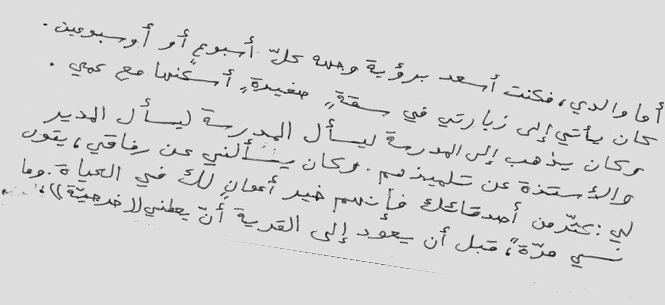 أما والدي، فكنت أسعد برؤية وجهه كلّ أسبوع أو أوسبوعين.
كان يأتي إلى زيارتي في سقةٍ صغيدةٍ أسكنها مع عمي.
وكان يذهب إلى المدرسة ليسأل المدرسة ليسأل المدير
والأستذة عن تلميذهم. وكان يسألني عن رفاقي، يقول
لي: كثّر من أصدقائك فأنهم خير أعوانٍ لك في الحياة. وما
نسي مرّةً، قبل أن يعود إلى القرية أنّ يعطني ((خرجيّة))،